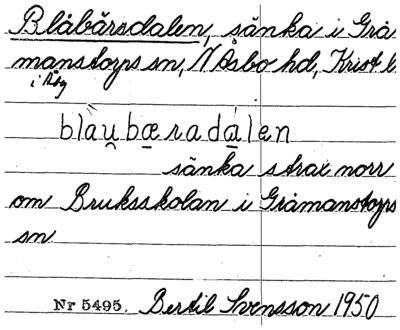 Blåbärsdalen, sänka i Grå
manstorps sn, N Åsbo hd, Krist l
blàu̯bæradálen
sänka strax norr
om Bruksskolan i Gråmanstorps
sn
Nr 5495. Bertil Svensson 1950